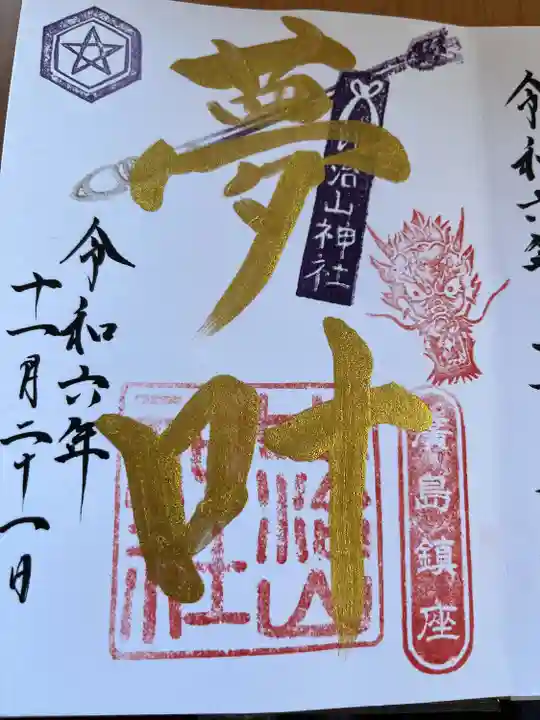 令和六年
治山神社
廣島鎮座
夢叶
令和六年
十一月二十一日